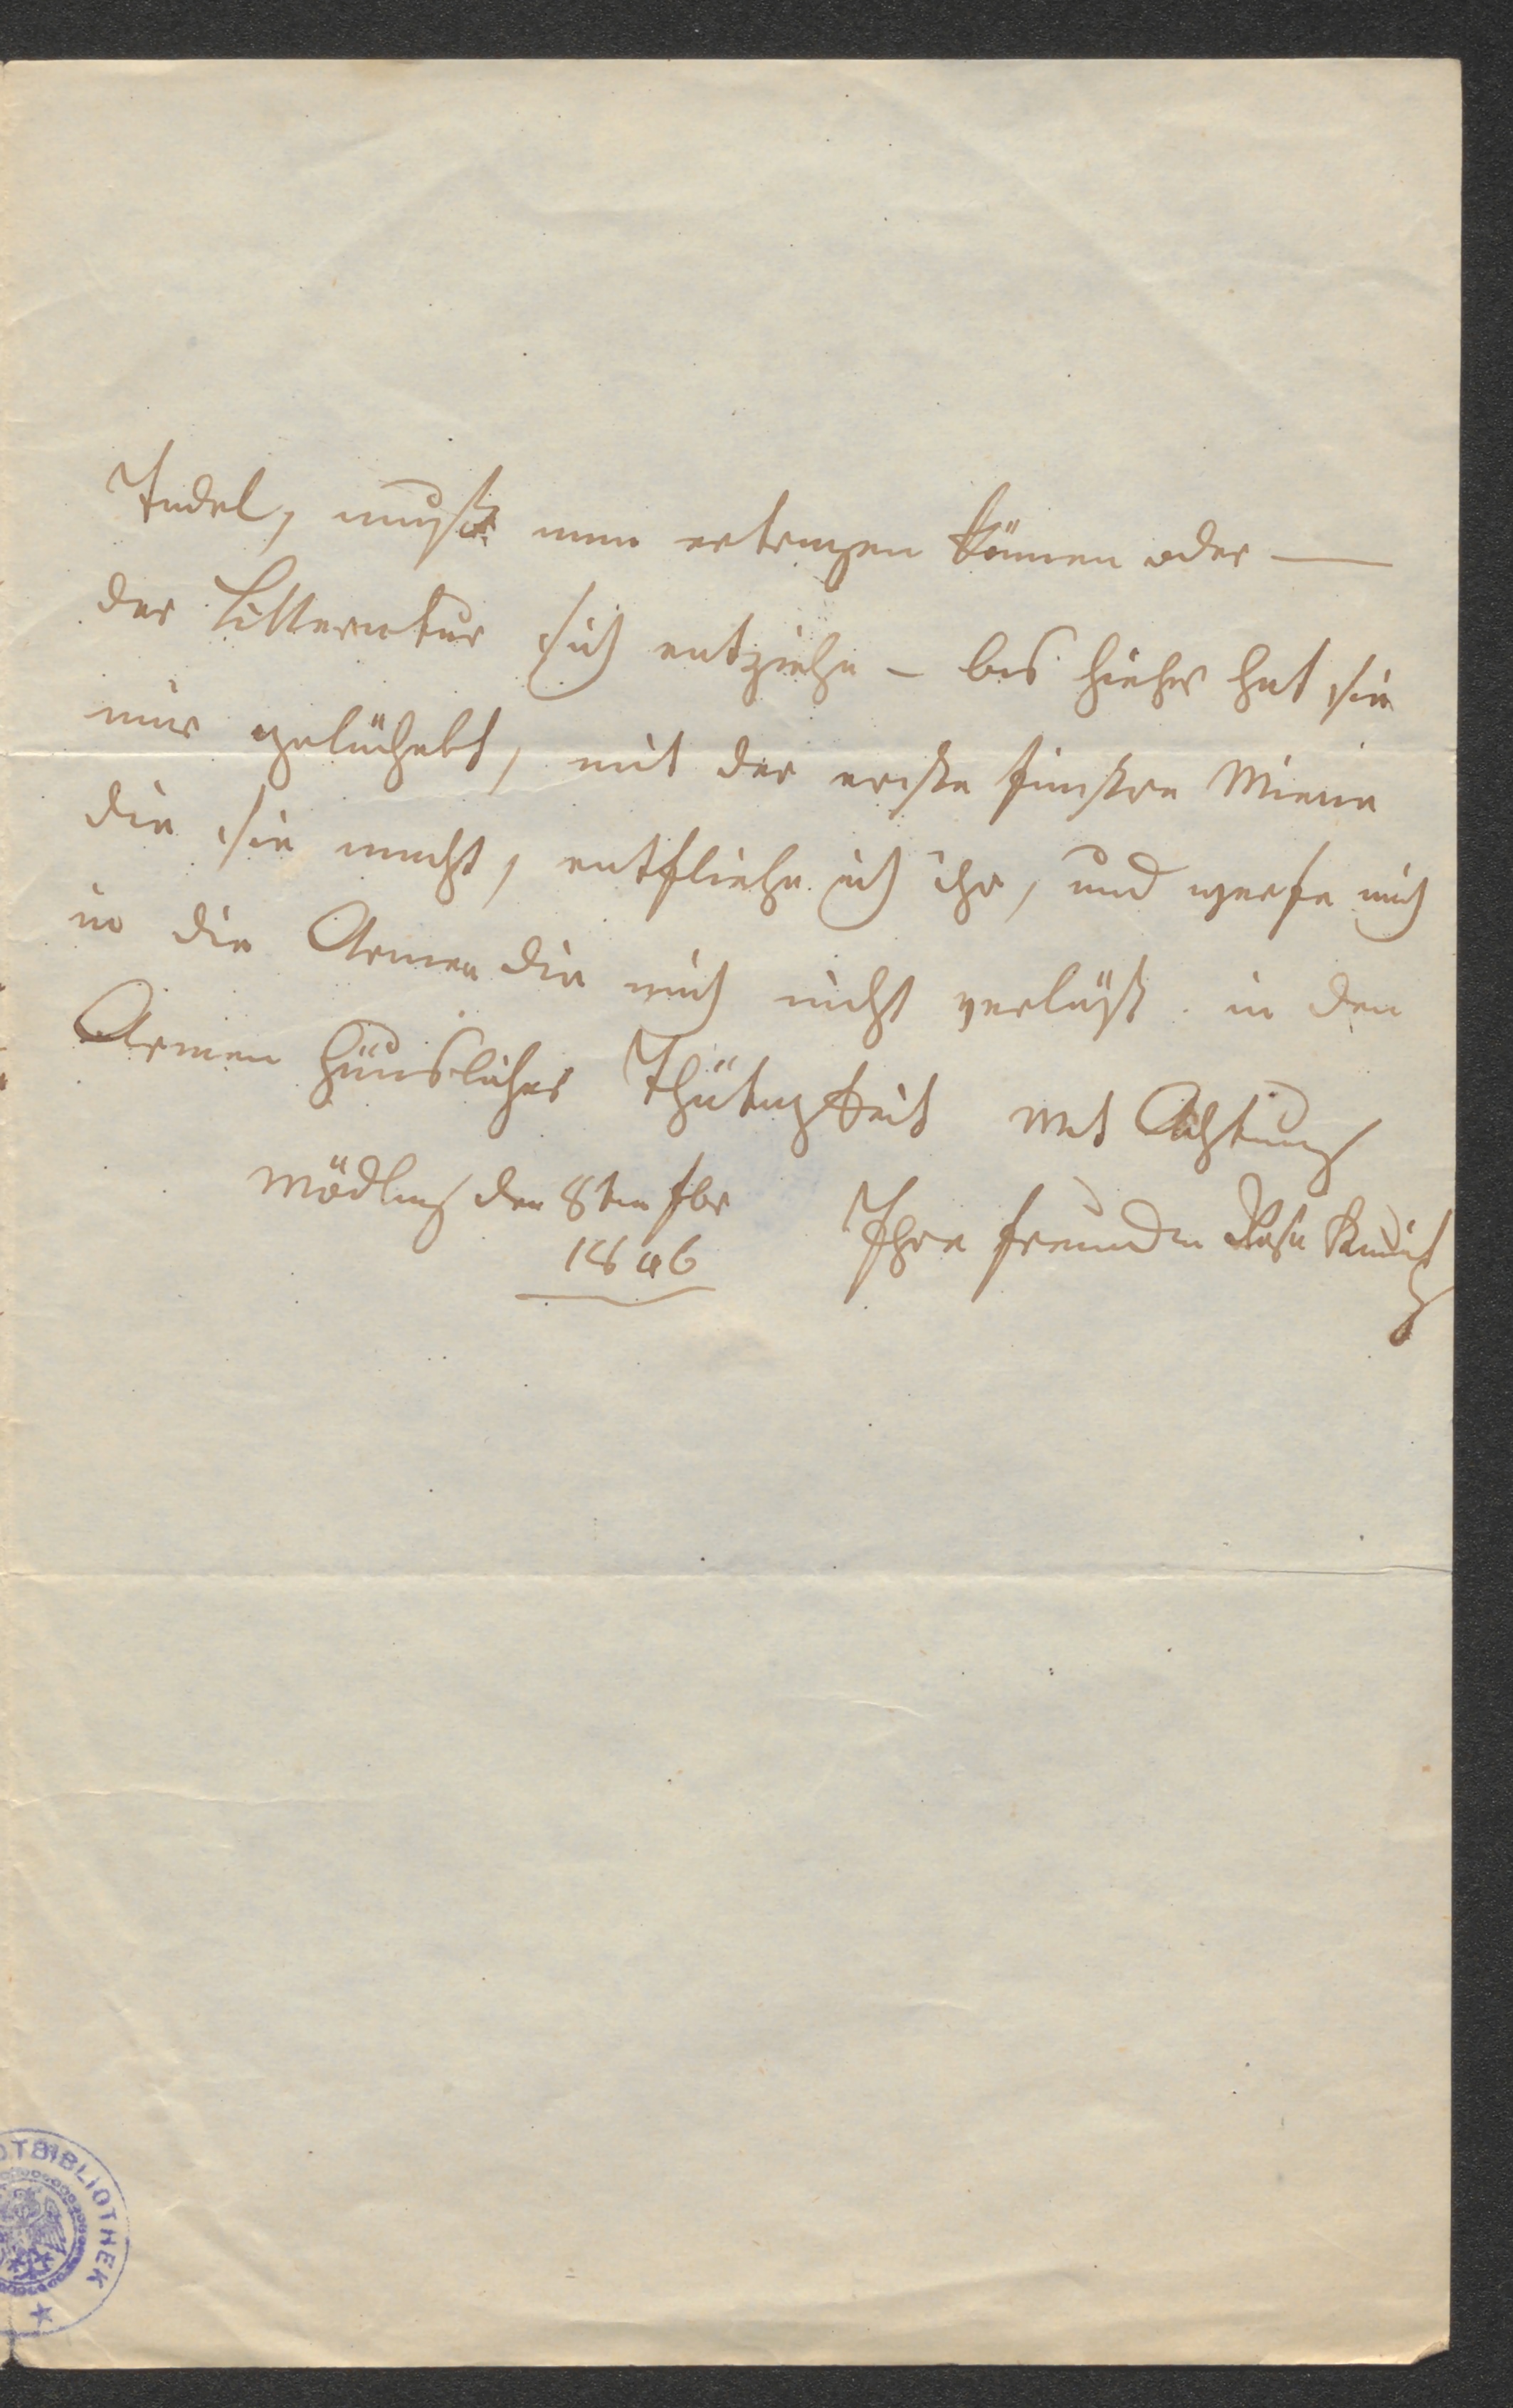 Tadel, mußt man ertragen können oder —
der Litteratur sich entziehn – bis hieher hat sie
mir gelächelt, mit der ersten finstren Miene
die sie macht, entfliehe ich ihr, und werfe mich
in die Armen die mich nicht verläßt. in den
Armen häuslicher Thätigkeit mit Achtung
Mödling den 8ten
1846
Ihre Freundin Rosa
TBIBLIOTHEK